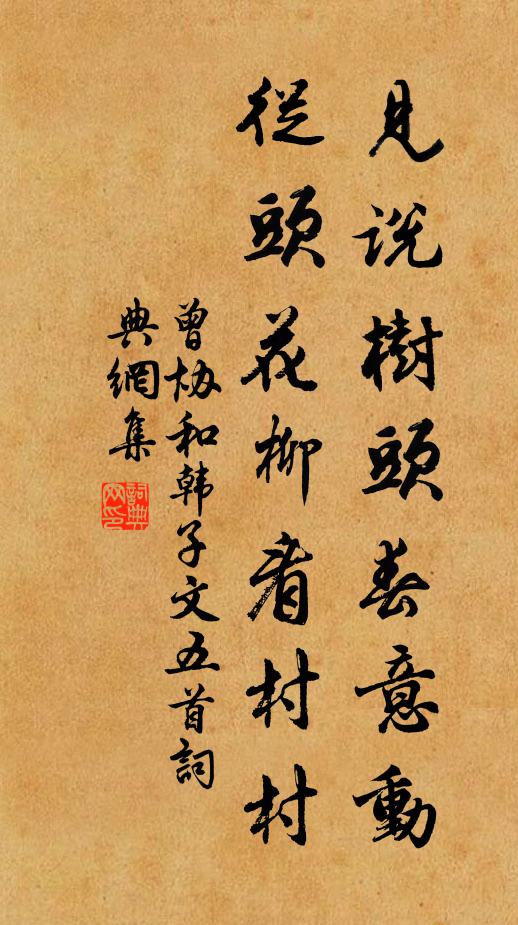 見説樹頭春意動
從頭花柳看村村
曾協和韩子文五首詞
典網集
詞典
網印